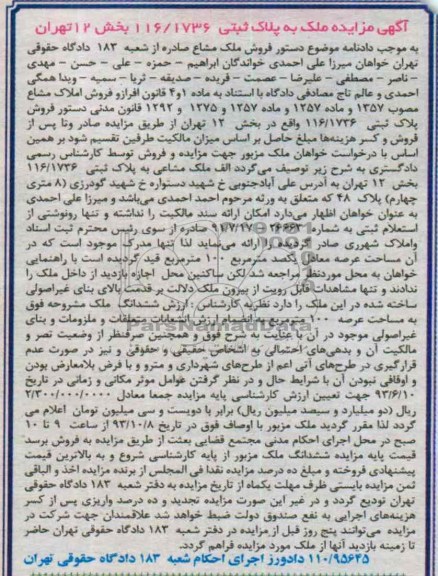 آگهی مزایده ملک به پلاک ثبتی ۱۱۶/۱۷۳۶ بخش ۱۲ تهران
به موجب دادنامه موضوع دستور فروش ملک مشاع صادره از شعبه ۱۸۳ دادگاه حقوقی
تهران خواهان میرزا علی احمدی خواندگان ابراهیم - حمزه - علی - حسن - مهدی
- ناصر - مصطفی - علیرضا - عصمت - فریده - صدیقه - ثریا - سمیه - ویدا همگی
احمدی و عالم تاج مصادقی دادگاه با استناد به ماده ۱و۴ قانون افرازو فروش املاک مشاع
مصوب ۱۳۵۷ و ماده ۱۳۵۷ و ماده ۱۲۵۷ و ۱۲۷۵ و ۱۲۹۲ قانون مدنی دستور فروش
پلاک ثبتی ۱۱۶/۱۷۳۶ واقع در بخش ۱۲ تهران از طریق مزایده صادر وتا پس از
فروش و کسر هزینه‌ها مبلغ حاصل بر اساس میزان مالکیت طرفین تقسیم شود بر همین
اساس با درخواست خواهان ملک مزبور جهت مزایده و فروش توسط کارشناس رسمی
دادگستری به شرح زیر توصیف می‌گردد الف ملک مشاعی به پلاک ثبتی ۱۱۶/۱۷۳۶
بخش ۱۲ تهران به آدرس علی آبادجنوبی خ شهید دستواره خ شهید گودرزی (۸ متری
چهارم) پلاک ۴۸ که متعلق به ورثه مرحوم احمد احمدی می‌باشد و میرزا علی احمدی
به عنوان خواهان اظهار می‌دارد امکان ارائه سند مالکیت را نداشته و تنها رونوشتی از
استعلام ثبتی به شماره ۲۶۶۶۳ ۹۱/۷/۱۷ صادره از سوی رئیس محترم ثبت اسناد
واملاک شهرری صادر گردیده را ارائه می‌نماید لذا تنها مدرک موجود است که در
آن مساحت عرصه معادل یکصد مترمربع ۱۰۰ مترمربع قید گردیده است با راهنمایی
خواهان به محل موردنظر مراجعه شد لکن ساکنین محل اجازه بازدید از داخل ملک را
ندادند و تنها مشاهدات قابل رویت از بیرون ملک دلالت بر قدمت بالای بنای غیراصولی
ساخته شده در این ملک را دارد نظریه کارشناس: ارزش ششدانگ ملک مشروحه فوق
به مساحت عرصه ۱۰۰ مترمربع به انضمام ارزش انشعابات متعلقات و ملزومات و بنای
غیراصولی موجود در آن با عنایت به شرح فوق و همچنین صرفنظر از وضعیت تصر و
مالکیت آن و بدهی‌های احتمالی به اشخاص حقیقی و حقوقی و نیز در صورت عدم
قرارگیری در طرح‌های آتی اعم از طرح‌های شهرداری و مترو و با فرض بلامعارض بودن
و اوقافی نبودن آن با شرایط حال و در نظر گرفتن عوامل موثر مکانی و زمانی در تاریخ
۹۳/۶/۱۰ جهت تعیین ارزش کارشناسی پایه مزایده جمعا معادل ۲/۳۰۰/۰۰۰/۰۰۰۰
ریال (دو میلیارد و سیصد میلیون ریال) برابر با دویست و سی میلیون تومان اعلام می
گردد لذا مقرر گردید ملک مزبور با اوصاف فوق در تاریخ ۹۳/۱۰/۸ از ساعت ۹ تا ۱۰
صبح در محل اجرای احکام مدنی مجتمع قضایی بعثت از طریق مزایده به فروش برسد
قیمت پایه مزایده ششدانگ ملک مزبور از پایه کارشناسی شروع و به بالاترین قیمت
پیشنهادی فروخته و مبلغ ده درصد مزایده نقدا فی المجلس از برنده مزایده اخذ و الباقی
ثمن مزایده بایستی ظرف مهلت یکماه از تاریخ مزایده به دفتر شعبه ۱۸۳ دادگاه حقوقی
تهران تودیع گردد و در غیر این صورت مزایده تجدید و ده درصد واریزی پس از کسر
هزینه‌های اجرایی به نفع صندوق دولت ضبط خواهد شد علاقمندان جهت شرکت در
مزایده می‌توانند پنج روز قبل از مزایده در دفتر شعبه ۱۸۳ دادگاه حقوقی تهران حاضر
تا زمینه بازدید آنها از ملک مورد مزایده فراهم گردد.
۱۱۰/۹۵۶۴۵ دادورز اجرای احکام شعبه ۱۸۳ دادگاه حقوقی تهران